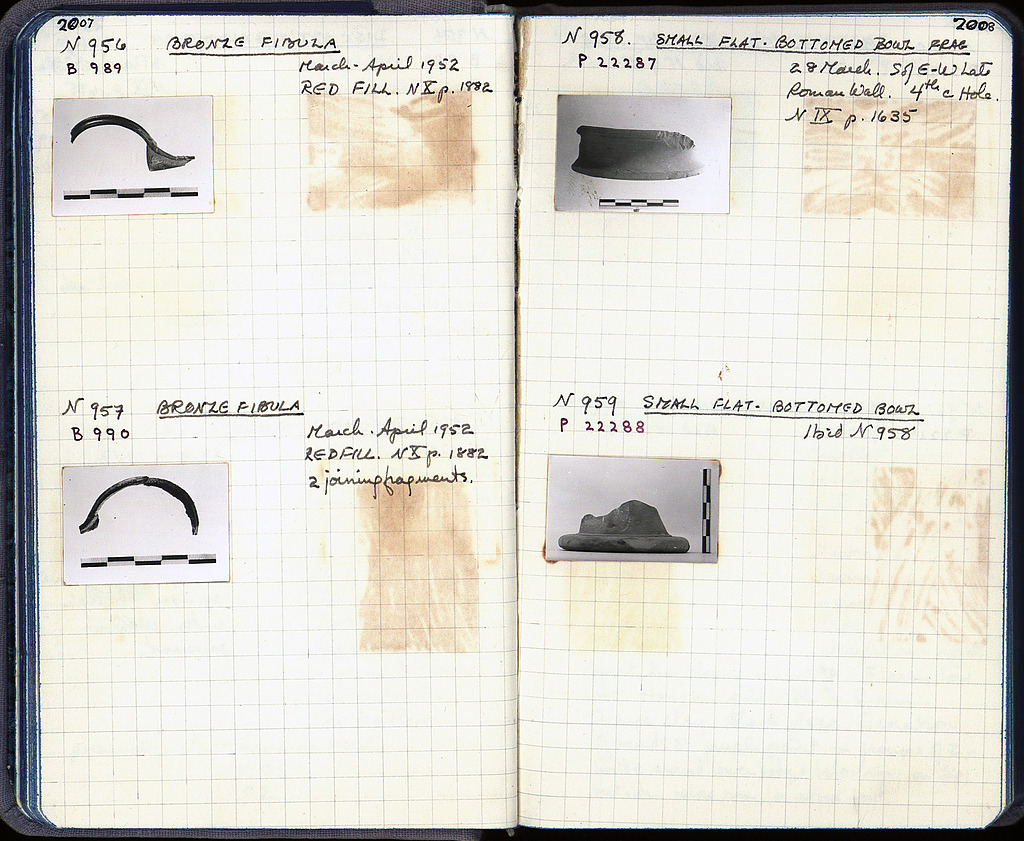 2007
N 956 BRONZE FIBULA
B 989 March - April 1952
RED FILL. N X p. 1882
N 957 BRONZE FIBULA
B 990 March - April 1952
RED FILL. N X p. 1882
2 joining fragments.
2008
N 958. SMALL FLAT-BOTTOMED BOWL FRAG
P 22287 28 March. S of E-W Late
Roman Wall. 4th c Hole.
N IX p. 1635
N 959 SMALL FLAT-BOTTOMED BOWL
P 22288 Ibid N 958